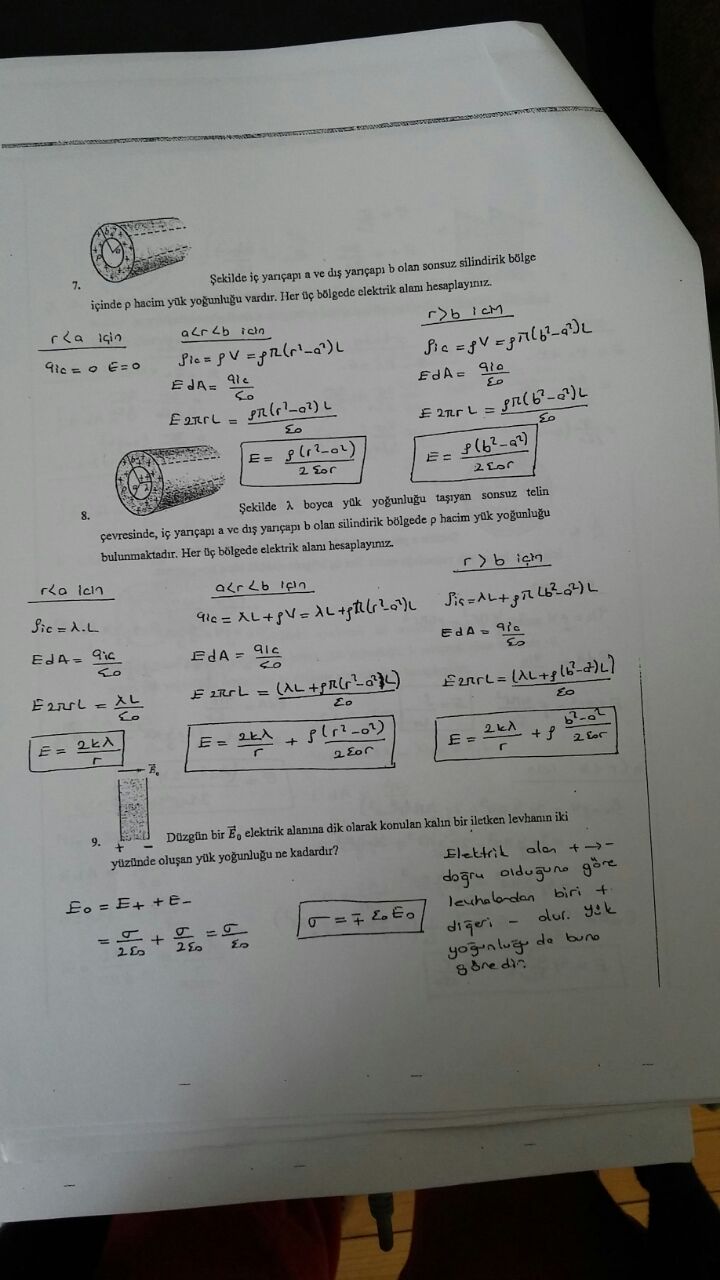 7.
Şekilde iç yarıçapı a ve dış yarıçapı b olan sonsuz silindirik bölge
içinde ρ hacim yük yoğunluğu vardır. Her üç bölgede elektrik alanı hesaplayınız.
r<a için
qiç = 0 E=0
a<r<b icin
ρic = ρV = ρπ(r²-a²)L
EdA = qiç/ε0
E2πrL = ρπ(r²-a²)L/ε0
E = ρ(r²-a²)/2ε0r
r>b icin
ρic = ρV = ρπ(b²-a²)L
EdA = qiç/ε0
E2πrL = ρπ(b²-a²)L/ε0
E = ρ(b²-a²)/2ε0r
8.
Şekilde λ boyca yük yoğunluğu taşıyan sonsuz telin
çevresinde, iç yarıçapı a ve dış yarıçapı b olan silindirik bölgede ρ hacim yük yoğunluğu
bulunmaktadır. Her üç bölgede elektrik alanı hesaplayınız.
r<a icin
ρic = λ.L
EdA = qiç/ε0
E2πrL = λL/ε0
E = 2kλ/r
a<r<b için
qiç = λL+ρV = λL+ρπ(r²-a²)L
EdA = qiç/ε0
E2πrL = (λL+ρπ(r²-a²)L)/ε0
E = 2kλ/r + ρ(r²-a²)/2ε0r
r>b için
ρiç = λL+ρπ(b²-a²)L
EdA = qiç/ε0
E2πrL = (λL+ρ(b²-a²)L)/ε0
E = 2kλ/r + ρ b²-a²/2ε0r
E₀
+ -
9.
Düzgün bir E₀ elektrik alanına dik olarak konulan kalın bir iletken levhanın iki
yüzünde oluşan yük yoğunluğu ne kadardır?
E0 = E+ + E-
= σ/2ε0 + σ/2ε0 = σ/ε0
σ = ∓ ε0E0
Elektrik alan + → -
doğru olduğuna göre
levhalardan biri +
diğeri - olur. yük
yoğunluğu da buna
göredir.